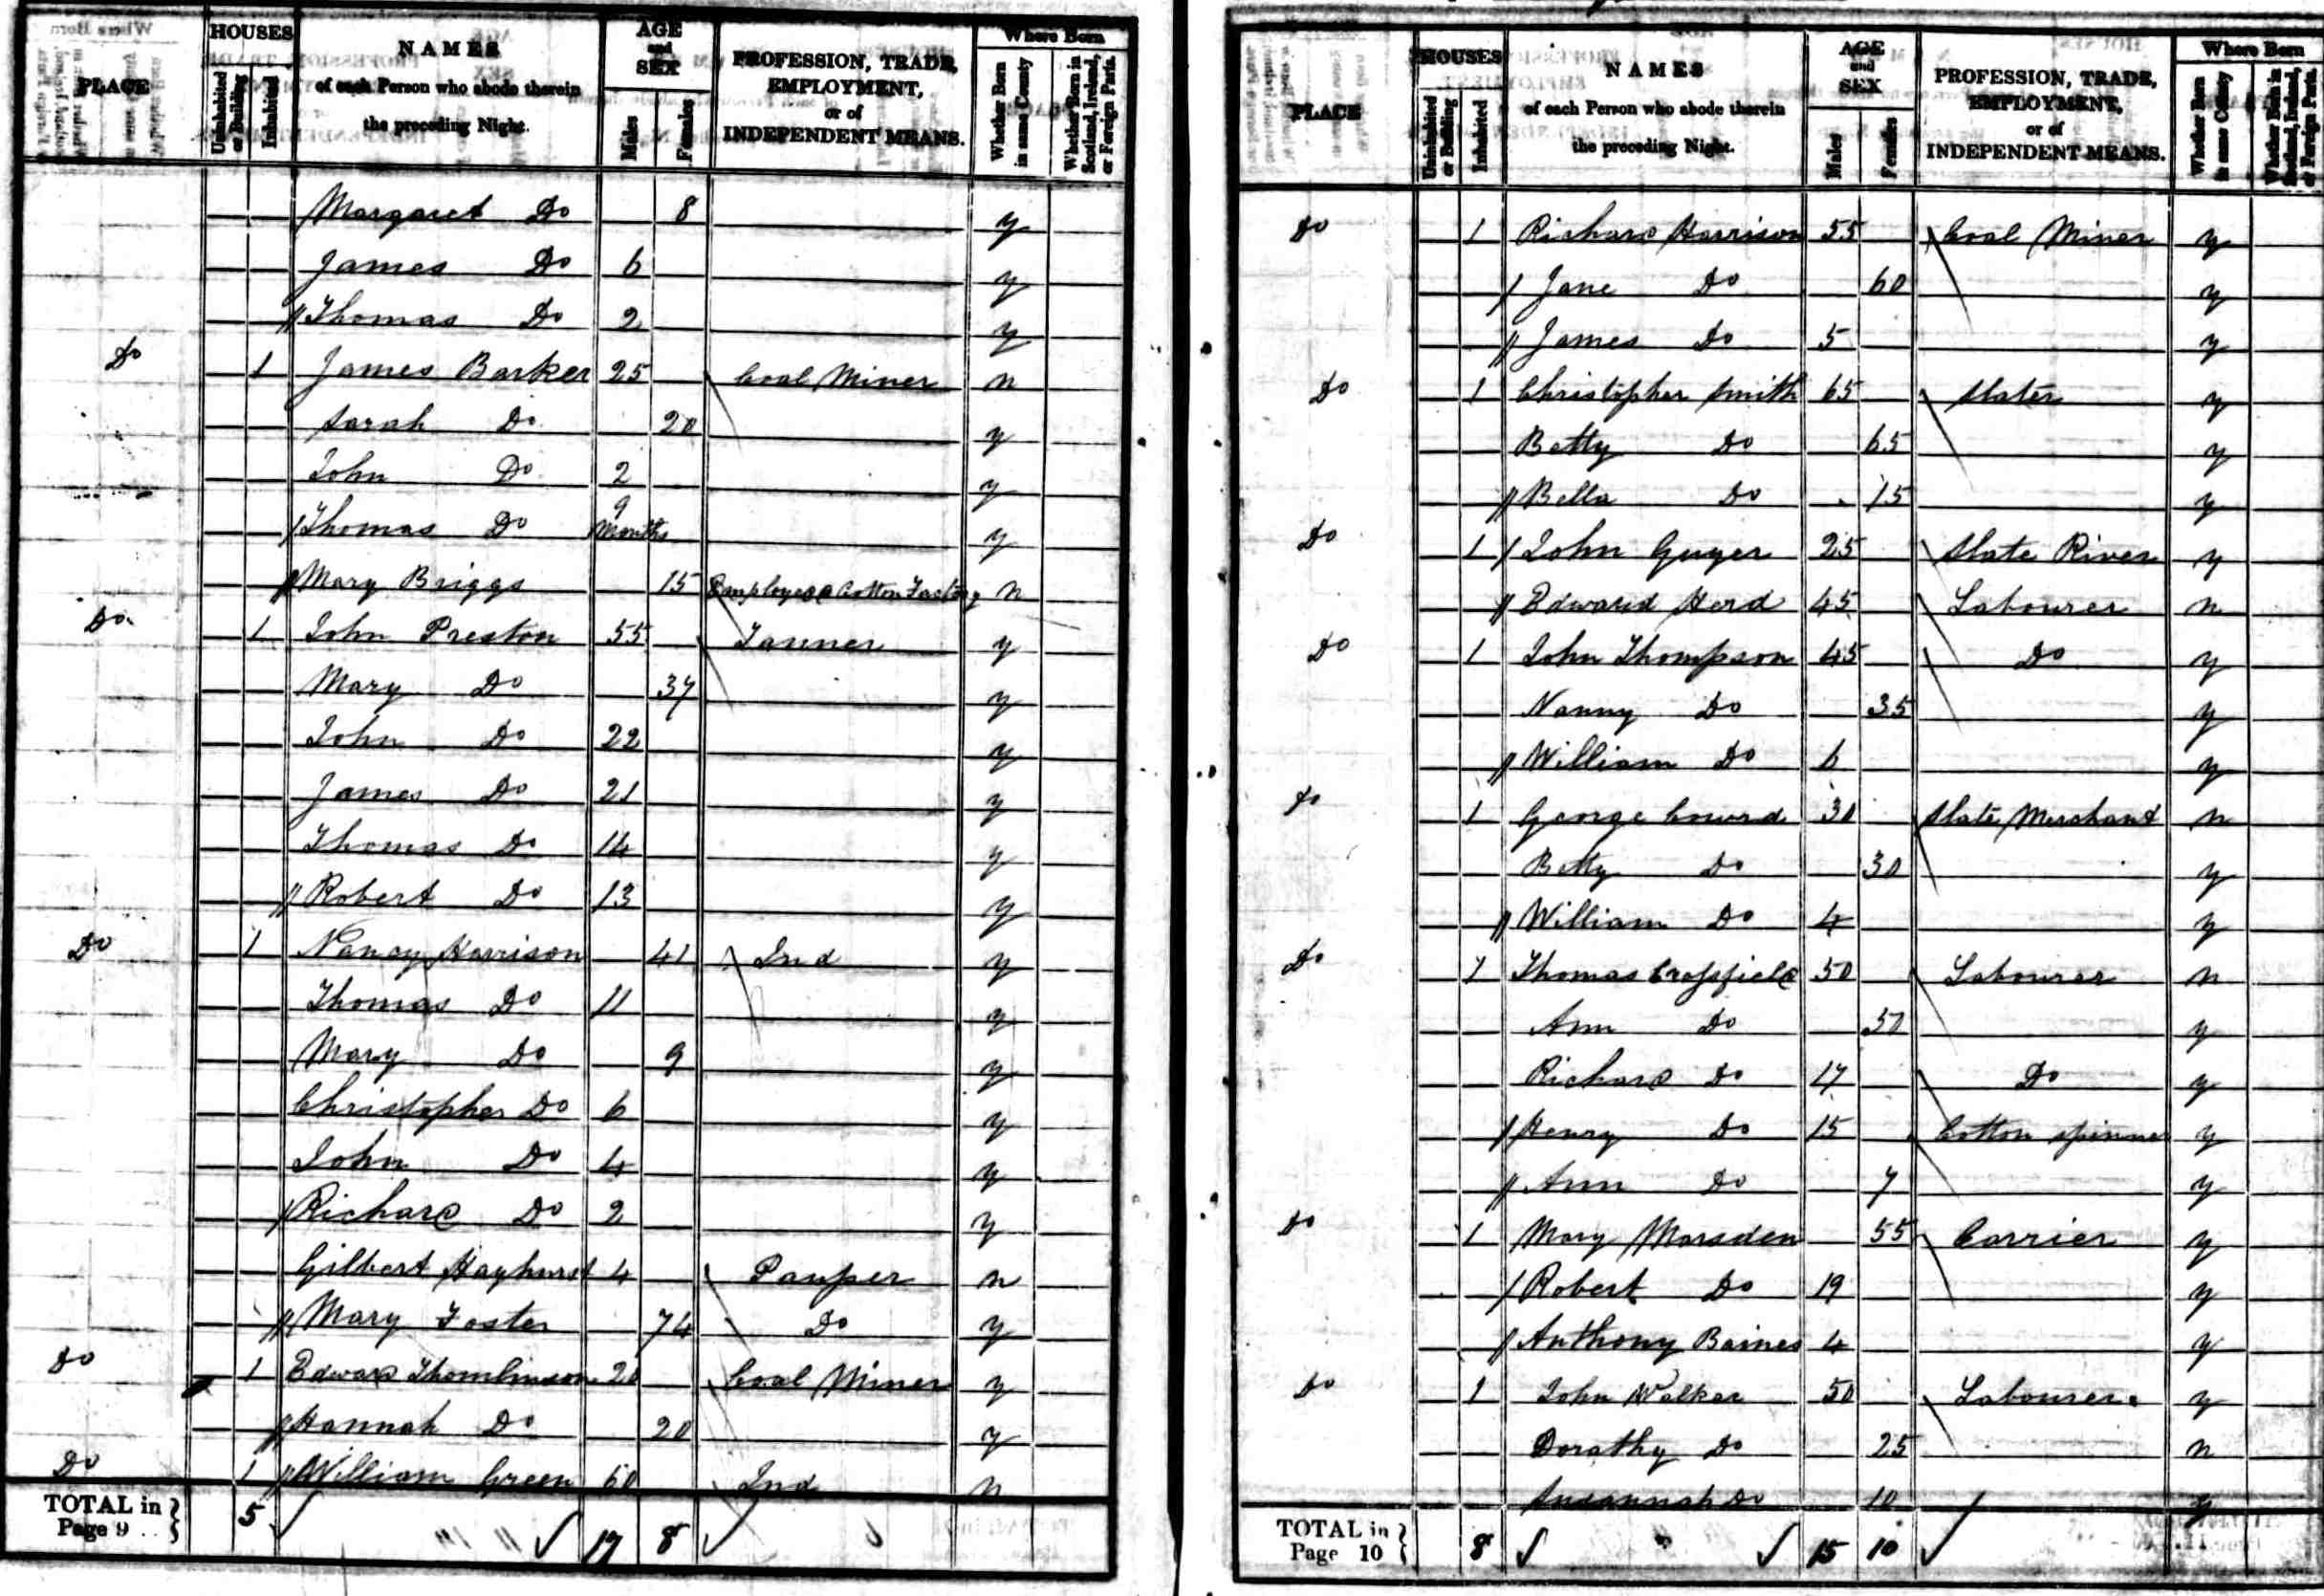 PLACE
HOUSES
Uninhabited or Building
Inhabited
NAMES
of each Person who abode therein
the preceding Night.
AGE
and
SEX
Males
Females
PROFESSION, TRADE,
EMPLOYMENT,
or of
INDEPENDENT MEANS.
Where Born
Whether Born in same County
Whether Born in Scotland, Ireland, or Foreign Parts.
Margaret Do 8 y
James Do 6 y
Thomas Do 2 y
Do 1 James Barker 25 Coal Miner n
Sarah Do 20 y
John Do 2 y
Thomas Do 9 Months y
Mary Briggs 15 Employed Cotton Factory n
Do 1 John Preston 55 Tanner y
Mary Do 37 y
John Do 22 y
James Do 21 y
Thomas Do 14 y
Robert Do 13 y
Do 1 Nancy Harrison 41 Ind y
Thomas Do 11 y
Mary Do 9 y
Christopher Do 6 y
John Do 4 y
Richard Do 2 y
Gilbert Hayhurst 4 Pauper n
Mary Foster 74 Do y
Do 1 Edward Thomlinson 20 Coal Miner y
Hannah Do 20 y
Do 1 William Green 60 Ind n
TOTAL in Page 9 5 17 8
PLACE
HOUSES
Uninhabited or Building
Inhabited
NAMES
of each Person who abode therein
the preceding Night.
AGE
and
SEX
Males
Females
PROFESSION, TRADE,
EMPLOYMENT,
or of
INDEPENDENT MEANS.
Where Born
Whether Born in same County
Whether Born in Scotland, Ireland, or Foreign Parts.
Do 1 Richard Harrison 55 Coal Miner y
Jane Do 60 y
James Do 5 y
Do 1 Christopher Smith 65 Slater y
Betty Do 65 y
Bella Do 15 y
Do 1 John Guyer 25 Slate River y
Edward Herd 45 Labourer n
Do 1 John Thompson 45 Do y
Nanny Do 35 y
William Do 6 y
Do 1 George Coward 30 Slate Merchant n
Betty Do 30 y
William Do 4 y
Do 1 Thomas Crossfield 50 Labourer n
Ann Do 50 y
Richard Do 17 Do y
Henry Do 15 Cotton spinner y
Ann Do 7 y
Do 1 Mary Marsden 55 Carrier y
Robert Do 19 y
Anthony Baines 4 y
Do 1 John Walker 50 Labourer y
Dorathy Do 25 n
Susannah Do 10 y
TOTAL in Page 10 8 15 10